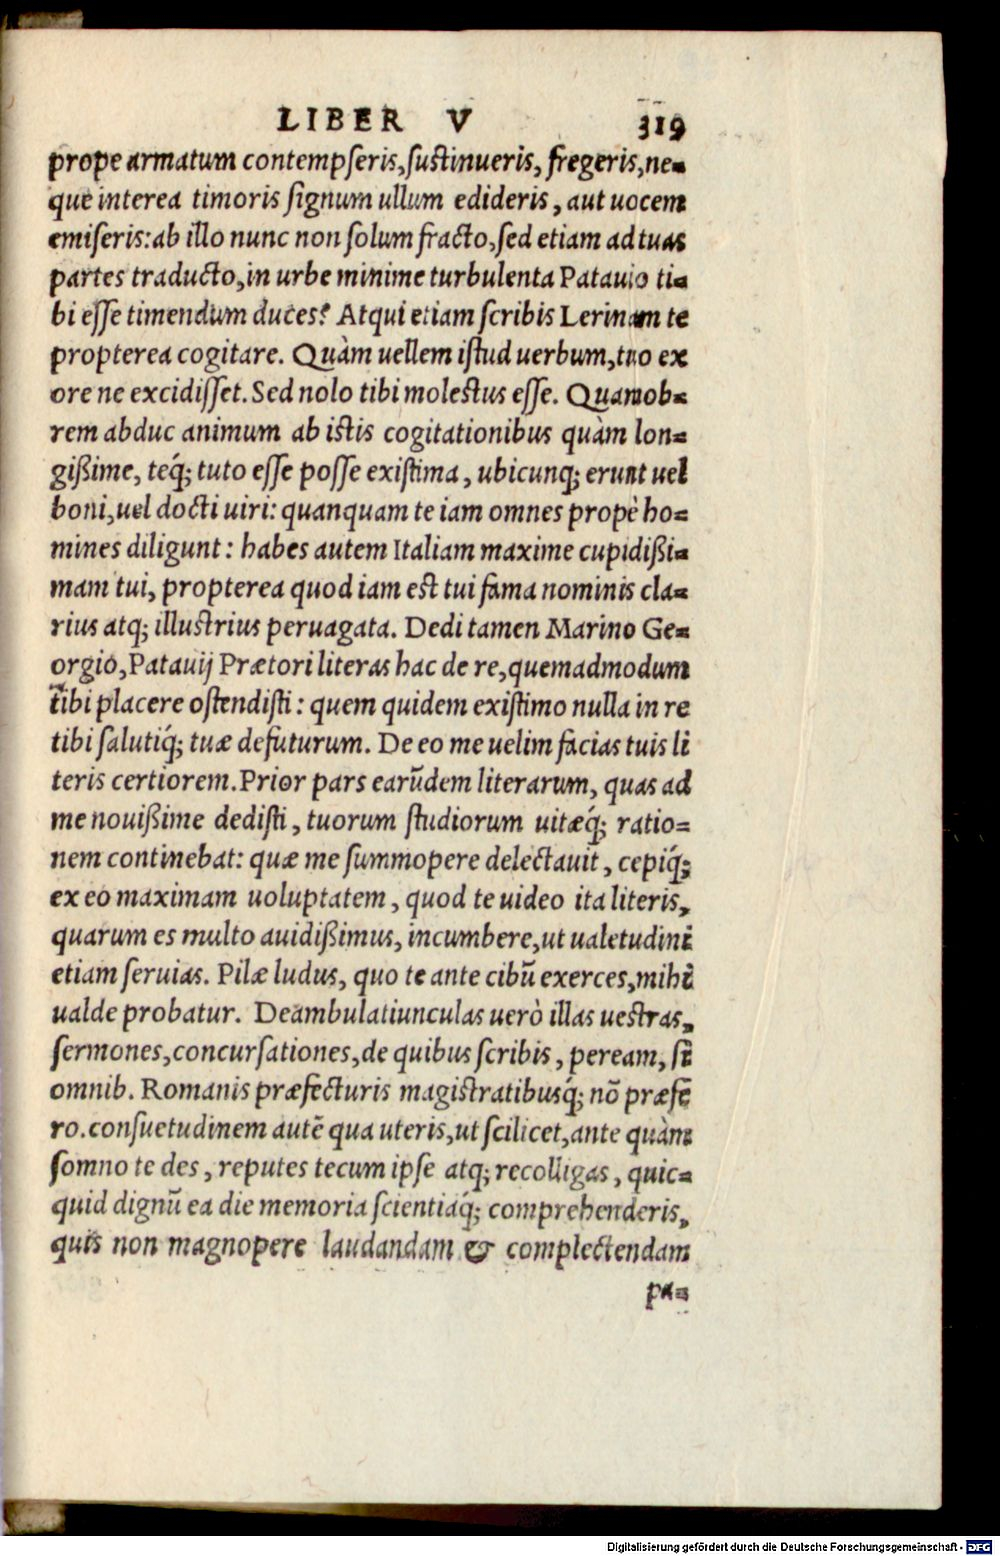 LIBER V 319
prope armatum contempseris, sustinueris, fregeris, ne=
que interea timoris signum ullum edideris, aut uocem
emiseris: ab illo nunc non solum fracto, sed etiam ad tuas
partes traducto, in urbe minime turbulenta Patauio ti=
bi esse timendum duces? Atqui etiam scribis Lerinam te
propterea cogitare. Quàm uellem istud uerbum, tuo ex
ore ne excidisset. Sed nolo tibi molestus esse. Quamob=
rem abduc animum ab istis cogitationibus quàm lon=
gißime, teq́; tuto esse posse existima, ubicunq; erunt uel
boni, uel docti uiri: quanquam te iam omnes propè ho=
mines diligunt: habes autem Italiam maxime cupidißi=
mam tui, propterea quod iam est tui fama nominis cla=
rius atq; illustrius peruagata. Dedi tamen Marino Ge=
orgio, Patauij Prætori literas hac de re, quemadmodum
tibi placere ostendisti: quem quidem existimo nulla in re
tibi salutiq́; tuæ defuturum. De eo me uelim facias tuis li
teris certiorem. Prior pars earũdem literarum, quas ad
me nouißime dedisti, tuorum studiorum uitæq́; ratio=
nem continebat: quæ me summopere delectauit, cepiq́;
ex eo maximam uoluptatem, quod te uideo ita literis,
quarum es multo auidißimus, incumbere, ut ualetudini
etiam seruias. Pilæ ludus, quo te ante cibũ exerces, mihi
ualde probatur. Deambulatiunculas uerò illas uestras,
sermones, concursationes, de quibus scribis, peream, si
omnib. Romanis præfecturis magistratibusq́; nõ præfe
ro. consuetudinem autẽ qua uteris, ut scilicet, ante quàm
somno te des, reputes tecum ipse atq; recolligas, quic=
quid dignũ ea die memoria scientiaq́; comprehenderis,
quis non magnopere laudandam & complectendam
pa=
Digitalisierung gefördert durch die Deutsche Forschungsgemeinschaft - DFG